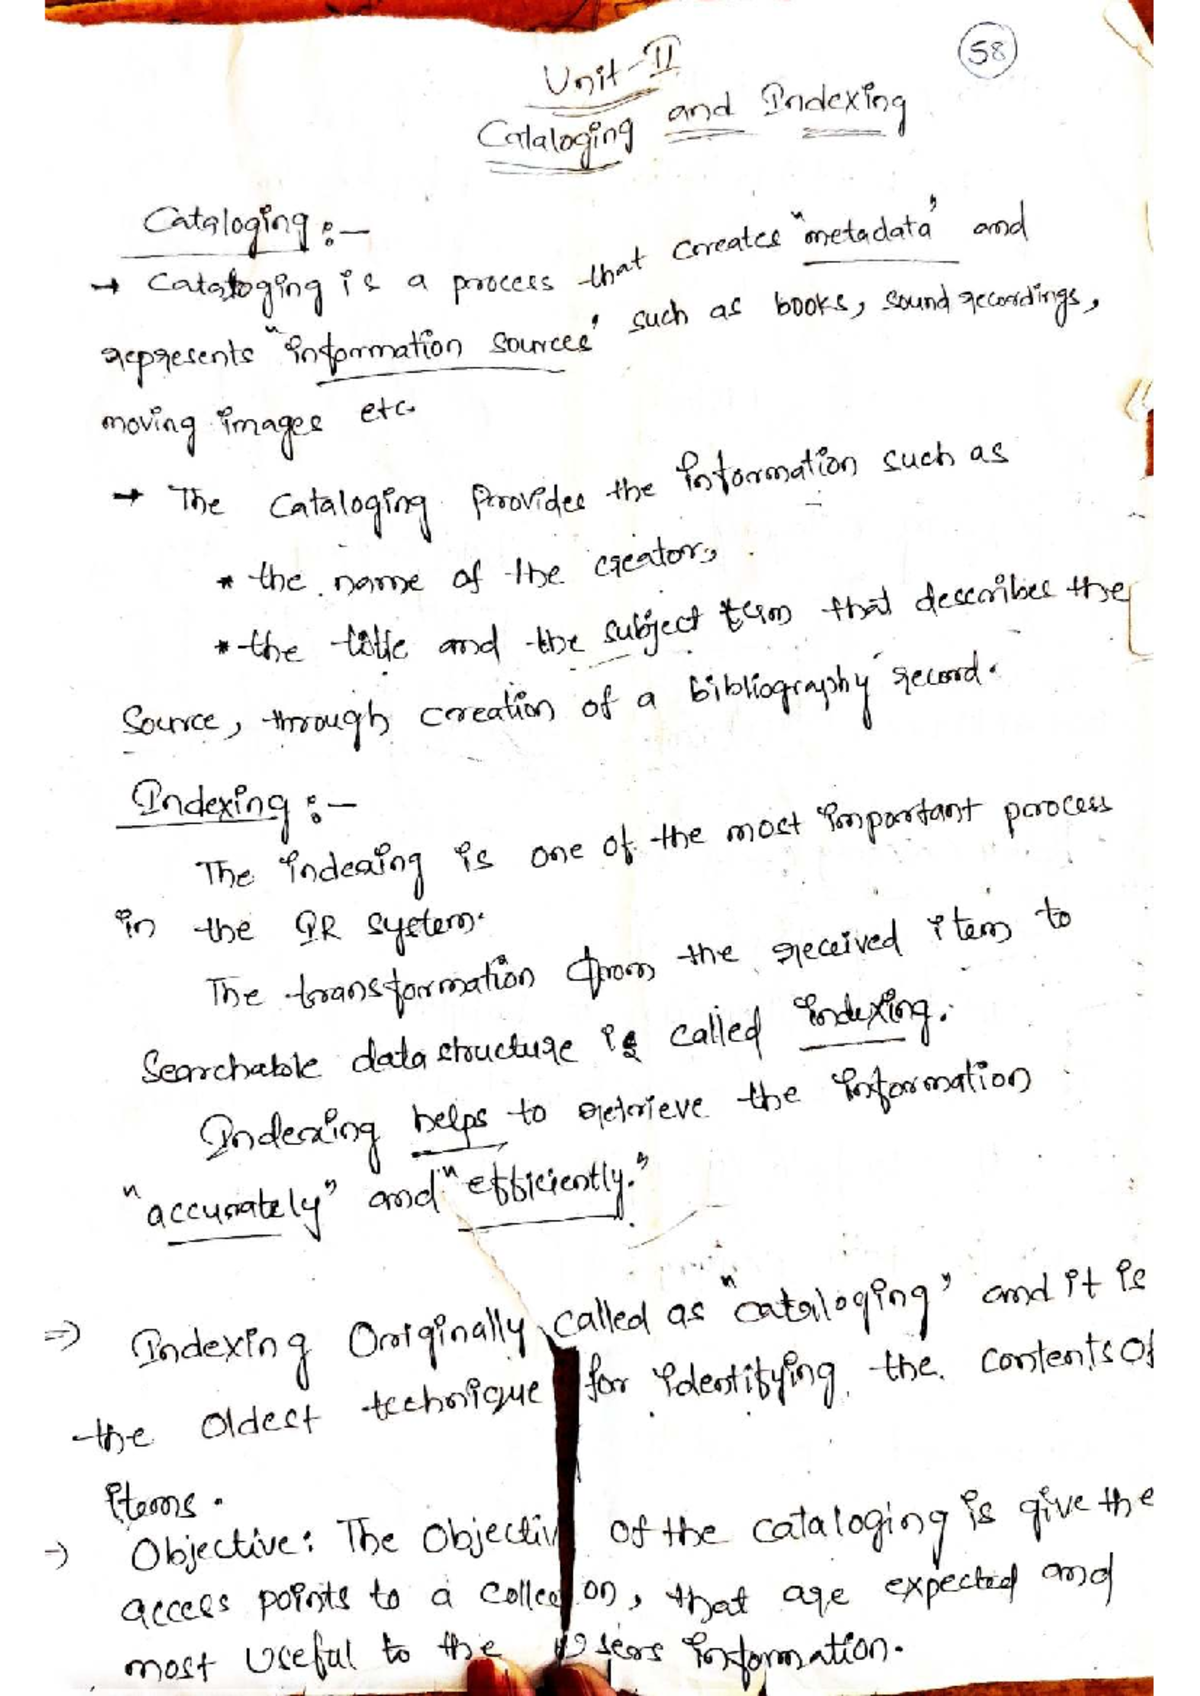 58
Unit-II
Cataloging and Indexing
Cataloging :-
→ Cataloging is a process that creates "metadata" and
represents "information sources" such as books, sound recordings,
moving images etc.
→ The Cataloging Provides the information such as
* the name of the creator,
* the title and the subject term that describes the
Source, through creation of a bibliography record.
Indexing :-
The indexing is one of the most important process
in the IR system.
The transformation from the received item to
Searchable data structure is called indexing.
Indexing helps to retrieve the information
"accurately" and "efficiently."
⇒ Indexing Originally called as "cataloging" and it is
the oldest technique for identifying the contents of
items.
→ Objective: The Objectiv of the cataloging is give the
access points to a collec on, that are expected and
most useful to the users information.